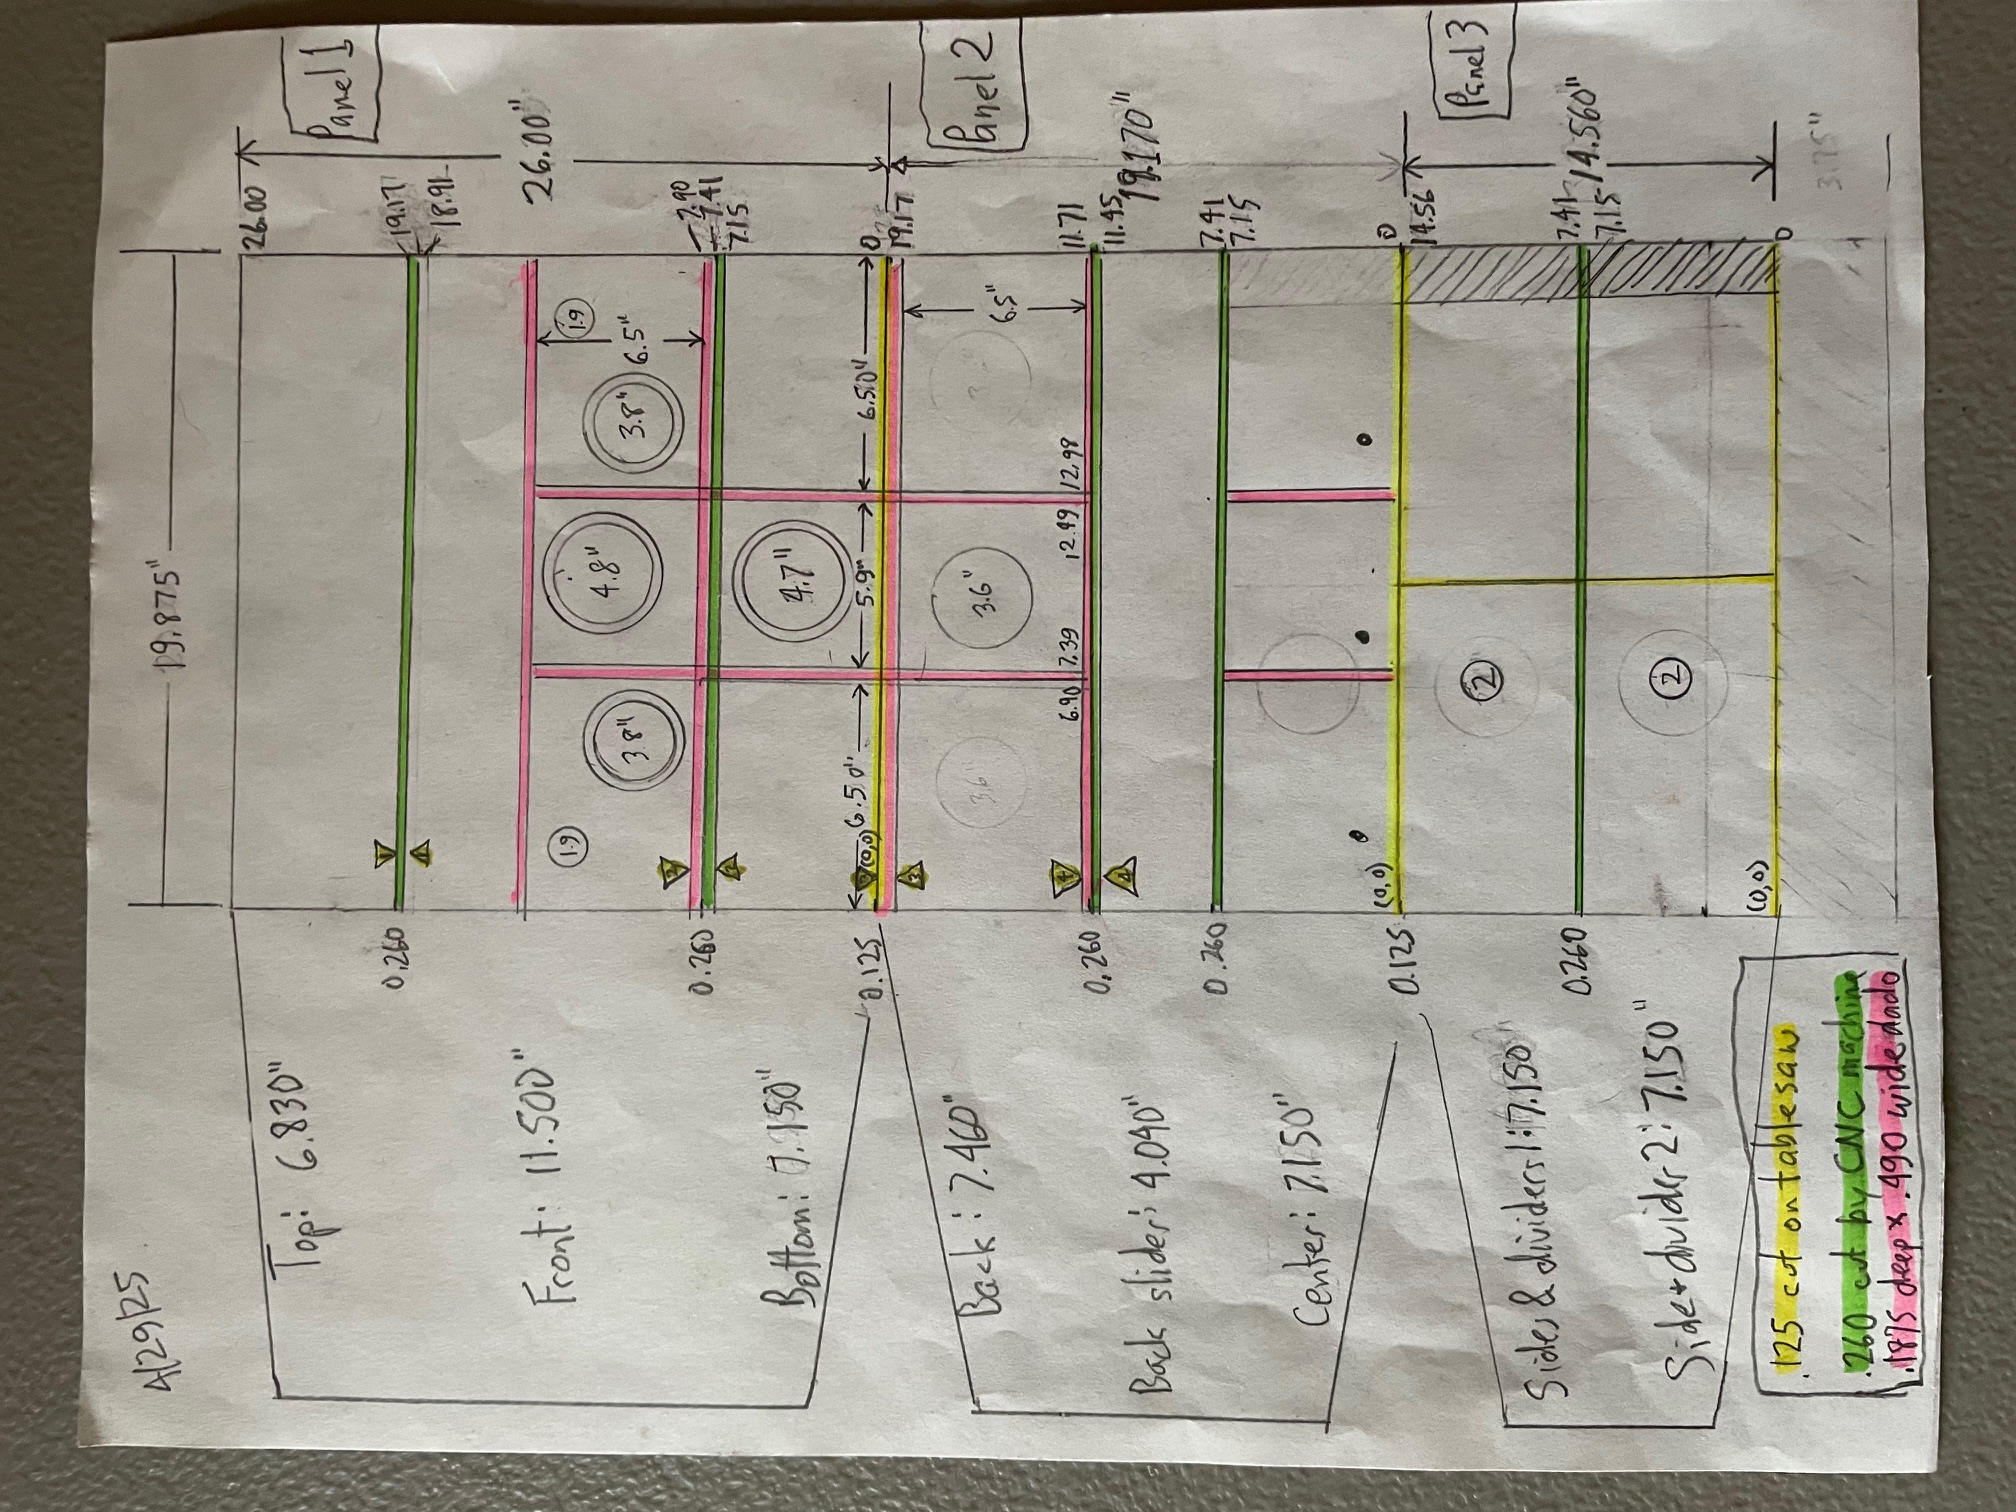 4/29/25
19.875"
26.00
Top: 6.830"
Panel 1
0.260
1
19.17
1
18.91
Front: 11.500"
26.00"
1.9
4.8"
1.9
3.8"
3.8"
6.5"
2
7.90
0.260
7.41
2
7.15
Bottom: 7.150"
4.7"
6.50"
5.9"
6.50"
0.125
3
(0,0)
0
19.17
3
Back: 7.460"
3.6"
3.6"
6.5"
Panel 2
4
6.90
7.39
12.49
12.98
11.71
0.260
11.45
4
19.170"
Back slider: 4.040"
0.260
7.41
7.15
Center: 7.150"
(0,0)
0
0.125
14.56
Panel 3
2
Sides & dividers 1: 7.150"
0.260
7.41
14.560"
7.15
2
Side + divider 2: 7.150"
(0,0)
0
.125 cut on table saw
3.75"
.260 cut by CNC machine
.1875 deep x .490 wide dado